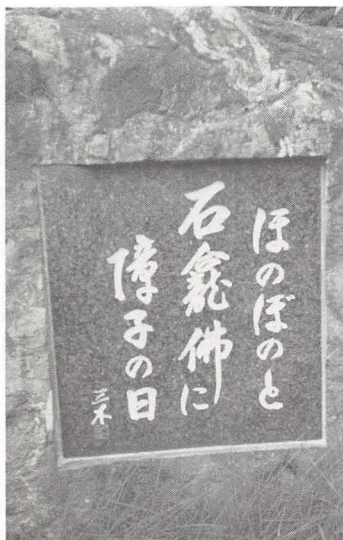 ほのぼのと
石龕佛に
障子の日
三木